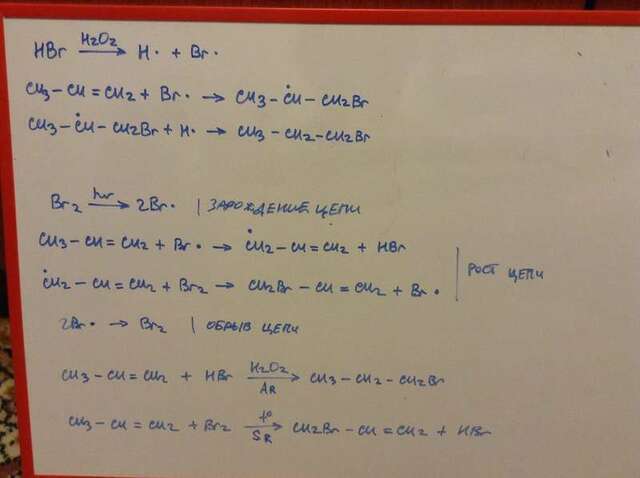 HBr H₂O₂ → H· + Br·
CH3 – CH = CH2 + Br· → CH3 – ĊH – CH2Br
CH3 – ĊH – CH2Br + H· → CH3 – CH2 – CH2Br
Br₂ hν → 2Br· | ЗАРОЖДЕНИЕ ЦЕПИ
CH3 – CH = CH2 + Br· → ĊH2 – CH = CH2 + HBr
ĊH2 – CH = CH2 + Br2 → CH2Br – CH = CH2 + Br·
РОСТ ЦЕПИ
2Br· → Br2 | ОБРЫВ ЦЕПИ
CH3 – CH = CH2 + HBr H2O2 → AR CH3 – CH2 – CH2Br
CH3 – CH = CH2 + Br2 t° → SR CH2Br – CH = CH2 + HBr